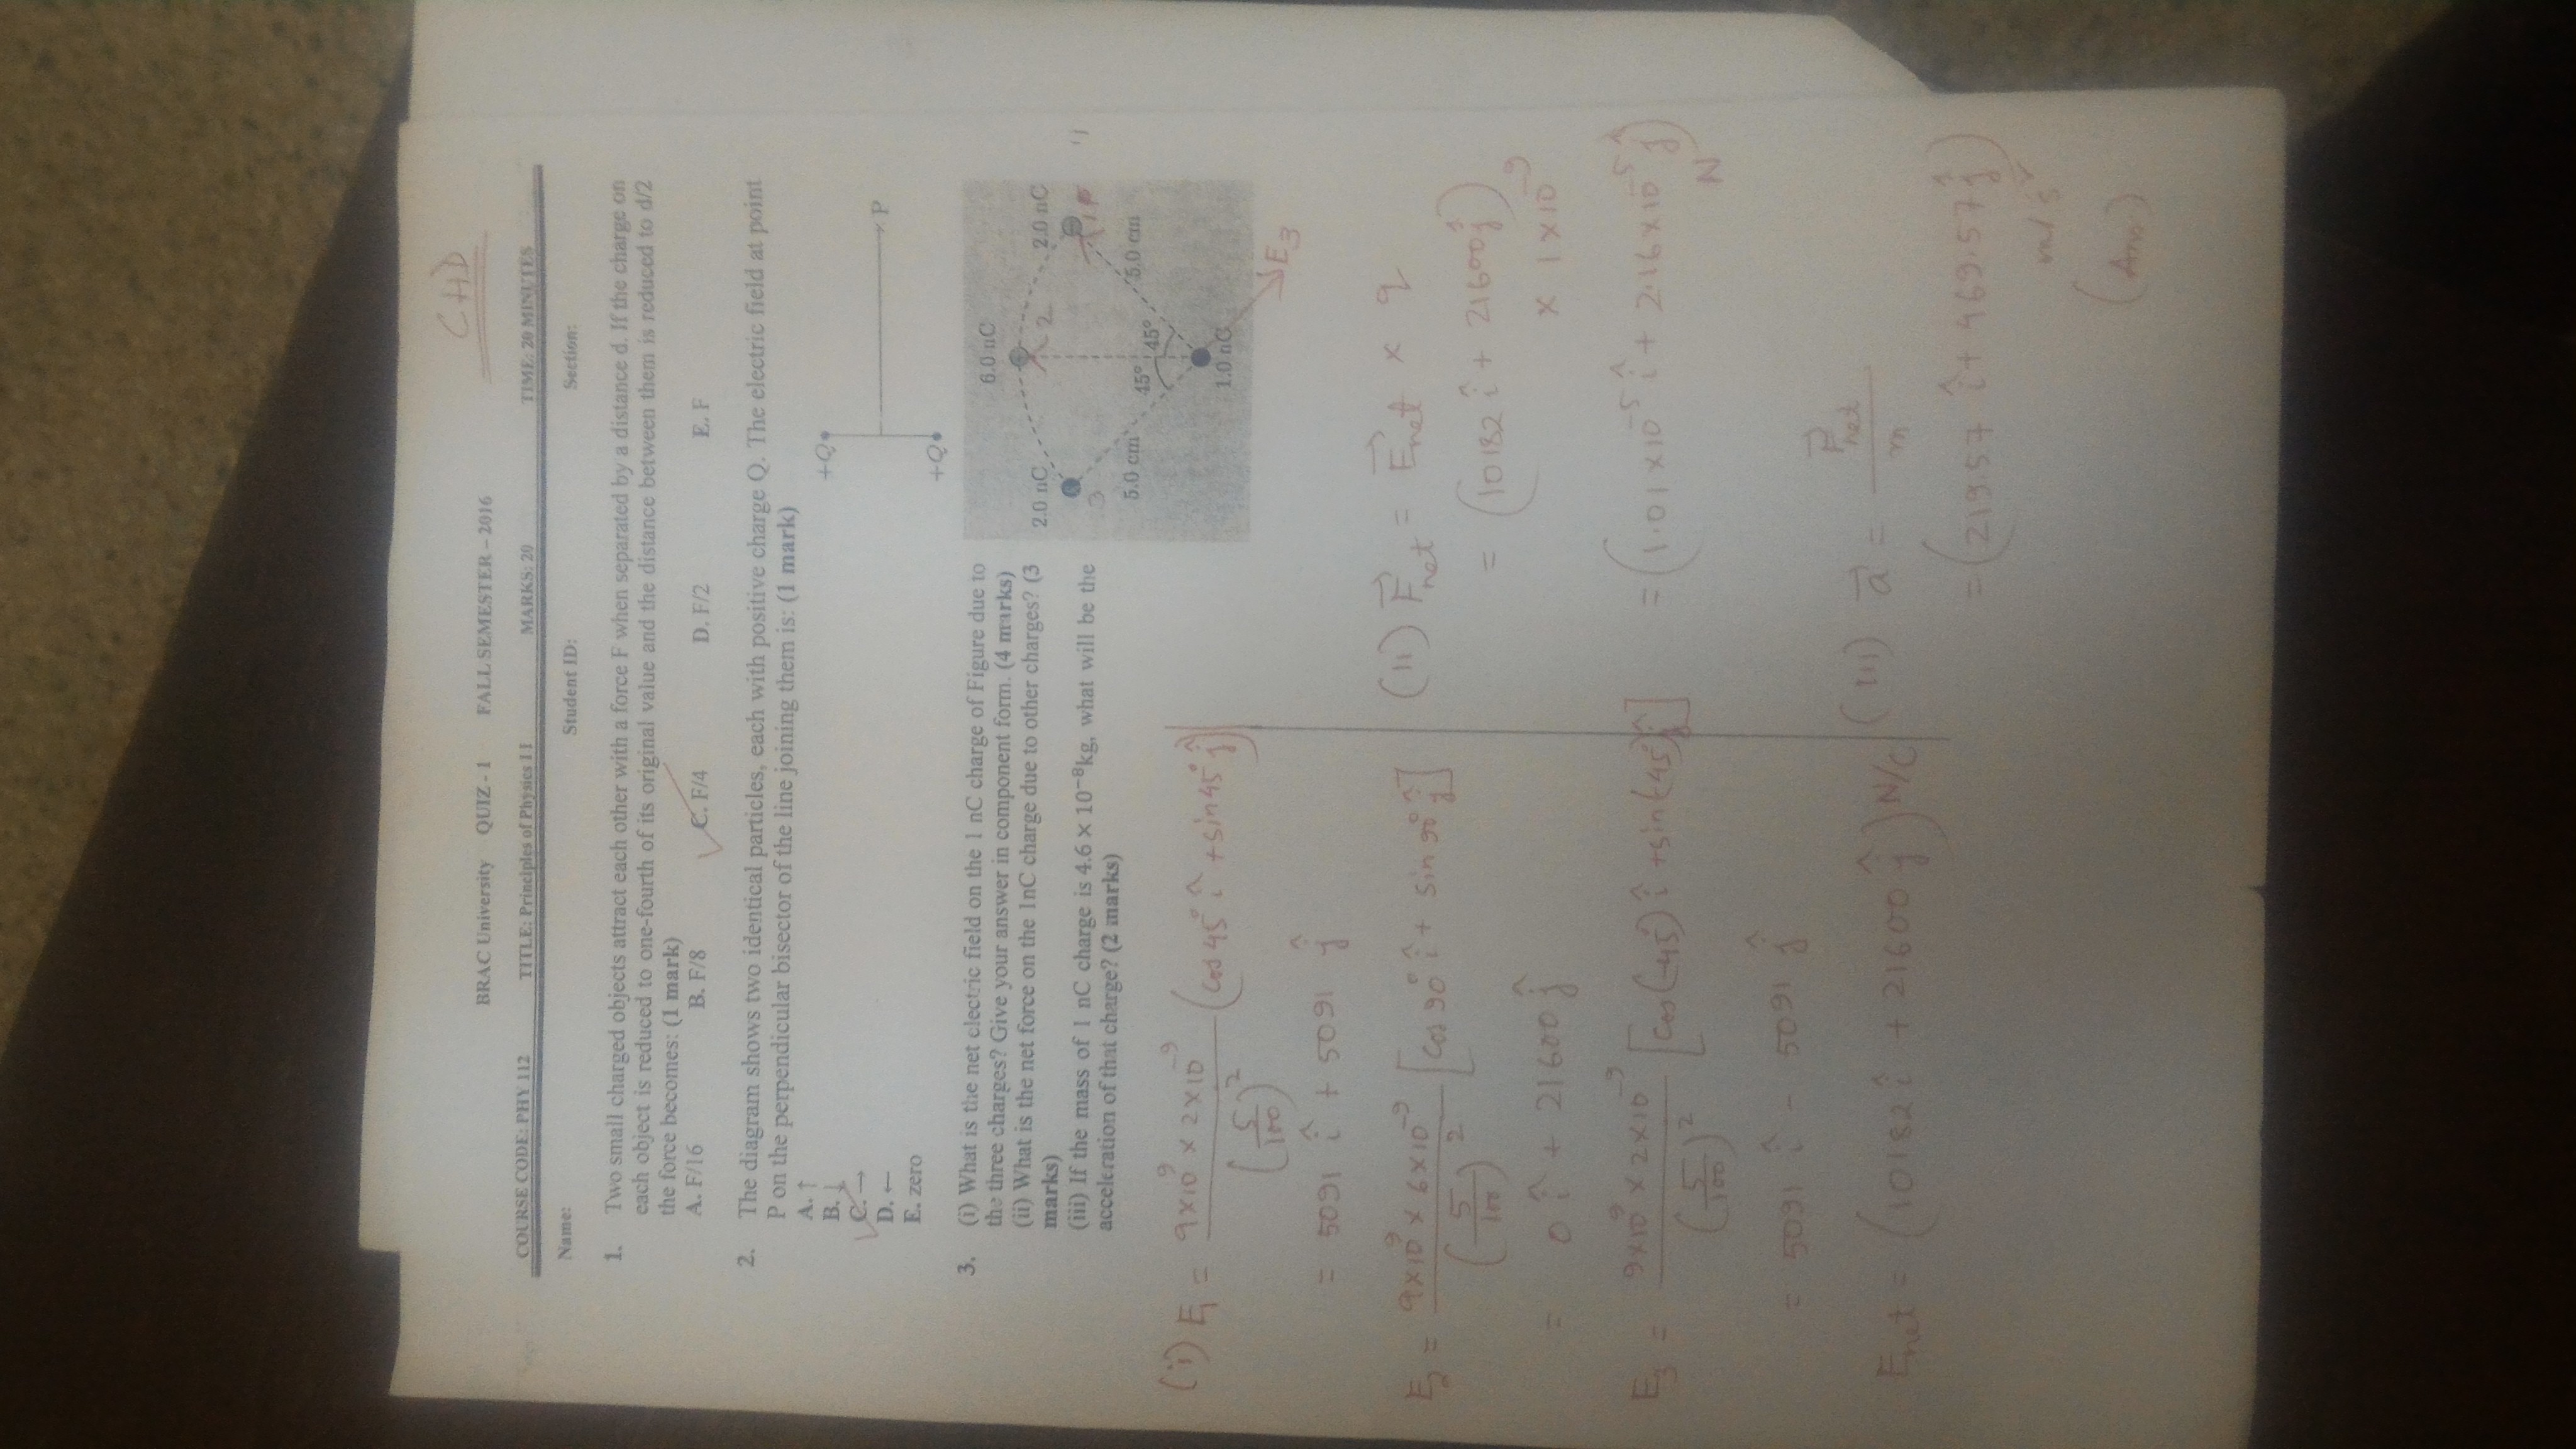 CHD
BRAC University QUIZ - 1 FALL SEMESTER – 2016
COURSE CODE: PHY 112 TITLE: Principles of Physics I I MARKS: 20 TIME: 20 MINUTES
Name: Student ID: Section:
1. Two small charged objects attract each other with a force F when separated by a distance d. If the charge on
each object is reduced to one-fourth of its original value and the distance between them is reduced to d/2
the force becomes: (1 mark)
A. F/16 B. F/8 C. F/4 D. F/2 E. F
2. The diagram shows two identical particles, each with positive charge Q. The electric field at point
P on the perpendicular bisector of the line joining them is: (1 mark)
A. ↑
B. ↓
C. →
D. ←
E. zero
+Q
P
+Q
3. (i) What is the net electric field on the 1 nC charge of Figure due to
the three charges? Give your answer in component form. (4 marks)
(ii) What is the net force on the 1nC charge due to other charges? (3
marks)
(iii) If the mass of 1 nC charge is 4.6 × 10⁻⁸kg, what will be the
acceleration of that charge? (2 marks)
6.0 nC
2.0 nC 2 2.0 nC
3
5.0 cm 45° 45° 5.0 cm
1.0 nC
E₃
(i) E₁ = 9×10⁹ × 2×10⁻⁹ / (5/100)² (cos 45° î + sin 45° ĵ)
= 5091 î + 5091 ĵ
E₂ = 9×10⁹ × 6×10⁻⁹ / (5/100)² [cos 90° î + sin 90° ĵ]
= 0 î + 21600 ĵ
E₃ = 9×10⁹ × 2×10⁻⁹ / (5/100)² [cos(-45°) î + sin(-45°) ĵ]
= 5091 î - 5091 ĵ
Enet = (10182 î + 21600 ĵ) N/C
(ii) F⃗net = E⃗net × q
= (10182 î + 21600 ĵ)
× 1×10⁻⁹
= (1.01×10⁻⁵ î + 2.16×10⁻⁵ ĵ)
N
(iii) a⃗ = F⃗net / m
= (219.57 î + 469.57 ĵ)
m/s²
(Ans)